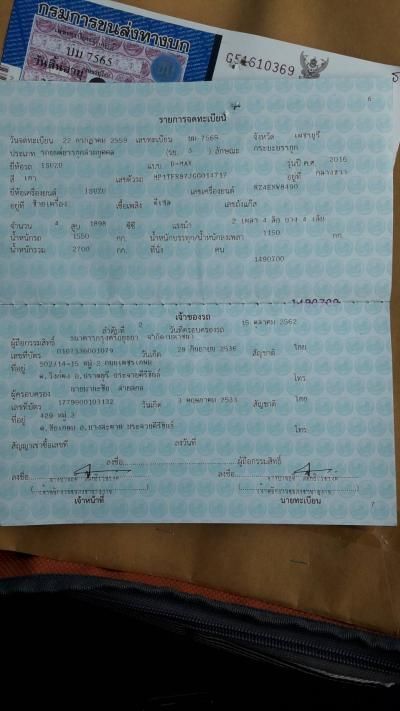 กรมการขนส่งทางบก
บม 7565
วันสิ้นอายุ
G51610369
6
รายการจดทะเบียน
วันจดทะเบียน 22 กรกฎาคม 2559 เลขทะเบียน บม 7565 จังหวัด เพชรบุรี
ประเภท รถยนต์บรรทุกส่วนบุคคล (รย. 3 ) ลักษณะ กระบะบรรทุก
ยี่ห้อรถ ISUZU แบบ D-MAX รุ่นปี ค.ศ. 2016
สี เทา เลขตัวรถ อยู่ที่ กลางขวา
ยี่ห้อเครื่องยนต์ ISUZU เลขเครื่องยนต์ RZ4EXV8490
อยู่ที่ ซ้ายเครื่อง เชื้อเพลิง ดีเซล เลขถังแก๊ส
จำนวน 4 สูบ 1898 ซีซี แรงม้า 2 เพลา 4 ล้อ ยาง 4 เส้น
น้ำหนักรถ 1550 กก. น้ำหนักบรรทุก/น้ำหนักลงเพลา 1150 กก.
น้ำหนักรวม 2700 กก. ที่นั่ง คน
1490700
1490700
เจ้าของรถ
ลำดับที่ 2 วันที่ครอบครองรถ 15 ตุลาคม 2562
ผู้ถือกรรมสิทธิ์ ธนาคารกรุงศรีอยุธยา จำกัด(มหาชน)
เลขที่บัตร 0107536001079 วันเกิด 28 กันยายน 2536 สัญชาติ ไทย
ที่อยู่ 502/14-15 หมู่.2 ถนนเพชรเกษม
ต.วังก์พง อ.ปราณบุรี ประจวบคีรีขันธ์ โทร
ผู้ครอบครอง
เลขที่บัตร 1779900103132 วันเกิด 3 พฤษภาคม 2533 สัญชาติ ไทย
ที่อยู่ 429 หมู่.3
ต.ชัยเกษม อ.บางสะพาน ประจวบคีรีขันธ์ โทร
สัญญาเช่าซื้อเลขที่ ลงวันที่
ลงชื่อ ผู้ถือกรรมสิทธิ์
ลงชื่อ ลงชื่อ
เจ้าหน้าที่ นายทะเบียน
7